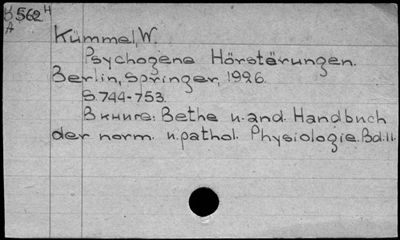 562 H
A
Kümmel, W.
Psychogene Hörstörungen.
Berlin, Springer, 1926.
S. 744-753.
В книге: Bethe u. and. Handbuch
der norm. u. pathol. Physiologie. Bd. 11.